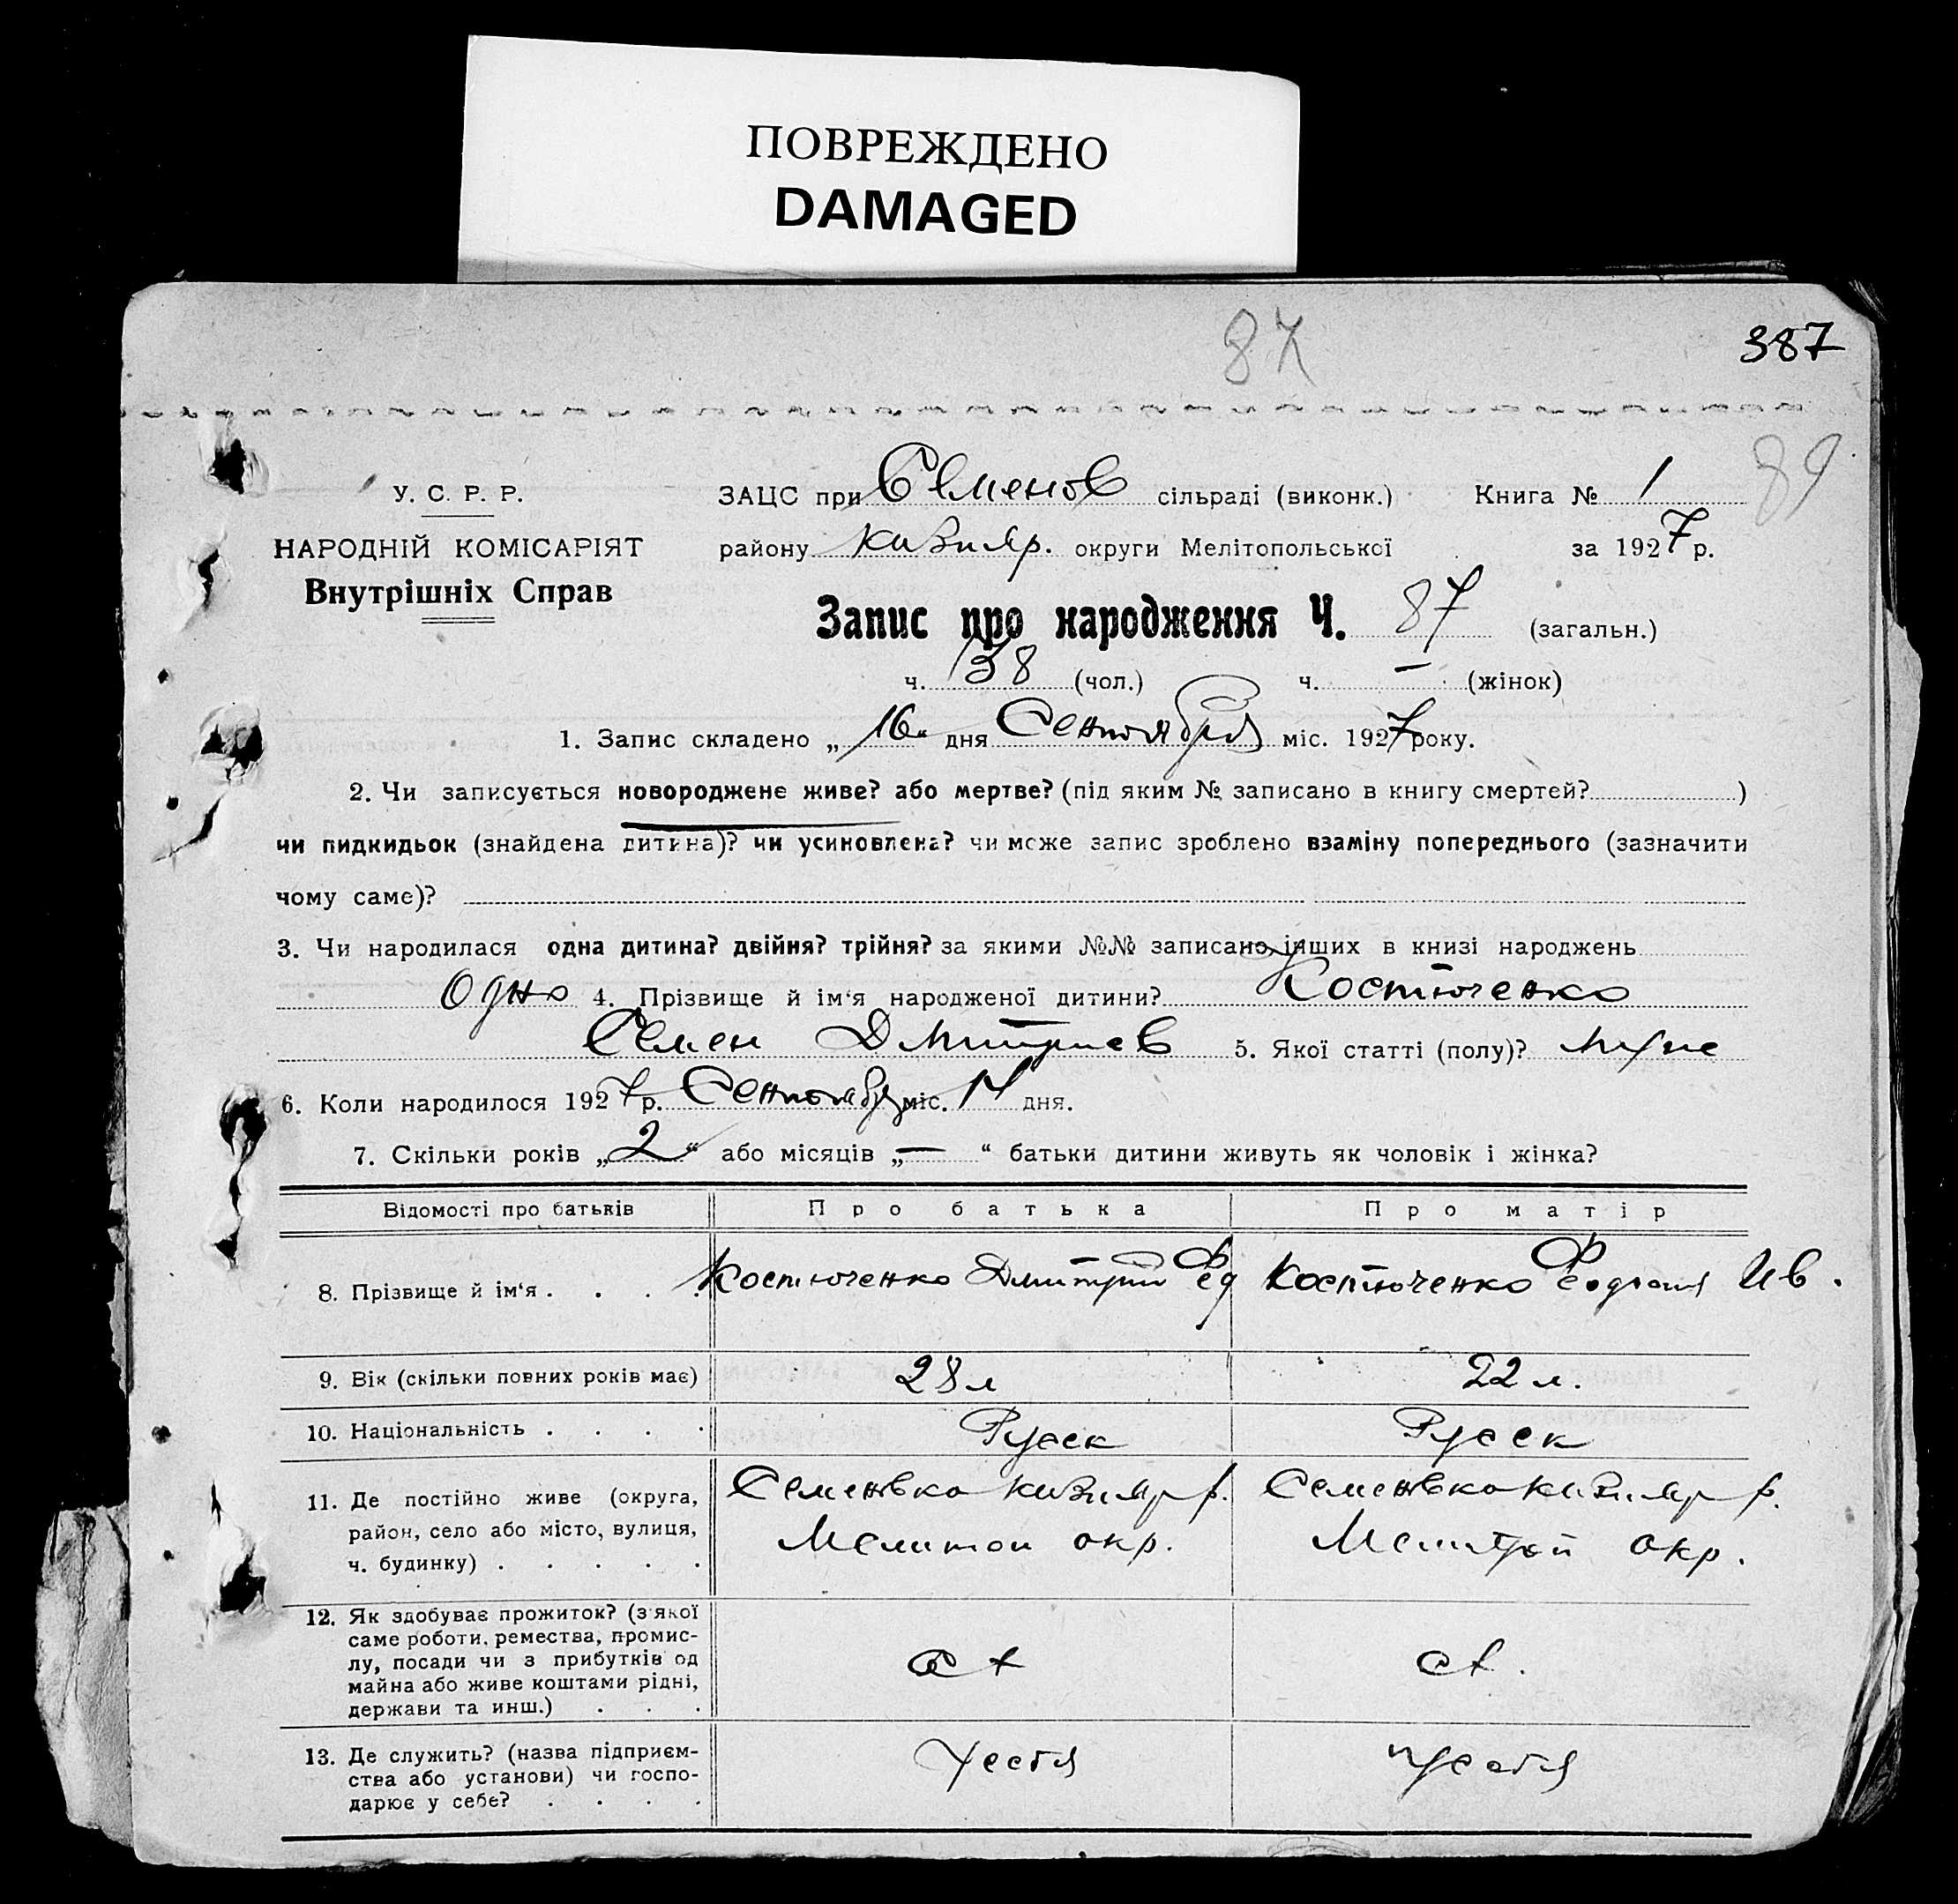 ПОВРЕЖДЕНО
DAMAGED
87
387
89
У. С. Р. Р.
НАРОДНІЙ КОМІСАРІЯТ
Внутрішніх Справ
ЗАЦС при Семенов сільраді (виконк.) Книга № 1
району Кизияр. округи Мелітопольської за 1927 р.
Запис про народження Ч. 87 (загальн.)
ч. 38 (чол.) ч. — (жінок)
1. Запис складено „16“ дня Сентября міс. 1927 року.
2. Чи записується новороджене живе? або мертве? (під яким № записано в книгу смертей? )
чи пидкидьок (знайдена дитина)? чи усиновлена? чи може запис зроблено взаміну попереднього (зазначити
чому саме)?
3. Чи народилася одна дитина? двійня? трійня? за якими №№ записано інших в книзі народжень
Одно 4. Прізвище й ім‘я народженої дитини? Костюченко
Семен Дмитриев 5. Якої статті (полу)? муже
6. Коли народилося 1927 р. Сентября міс. 14 дня.
7. Скільки років „2“ або місяців „—“ батьки дитини живуть як чоловік і жінка?
Відомості про батьків Про батька Про матір
8. Прізвище й ім‘я . . . . Костюченко Дмитрий Фед Костюченко Ив.
9. Вік (скільки повних років має) 28 л 22 л.
10. Національність . . . . Русск Русск
11. Де постійно живе (округа,
район, село або місто, вулиця,
ч. будинку) . . . . .
Семеновка Кизияр р.
Мелитоп окр.
Семеновка Кизияр р.
Мелитоп окр.
12. Як здобуває прожиток? (з якої
саме роботи, ремества, промис-
лу, посади чи з прибутків од
майна або живе коштами рідні,
держави та инш.) . . .
сх
сх.
13. Де служить? (назва підприєм-
ства або установи) чи госпо-
дарює у себе? . . . .
у себя
у себя